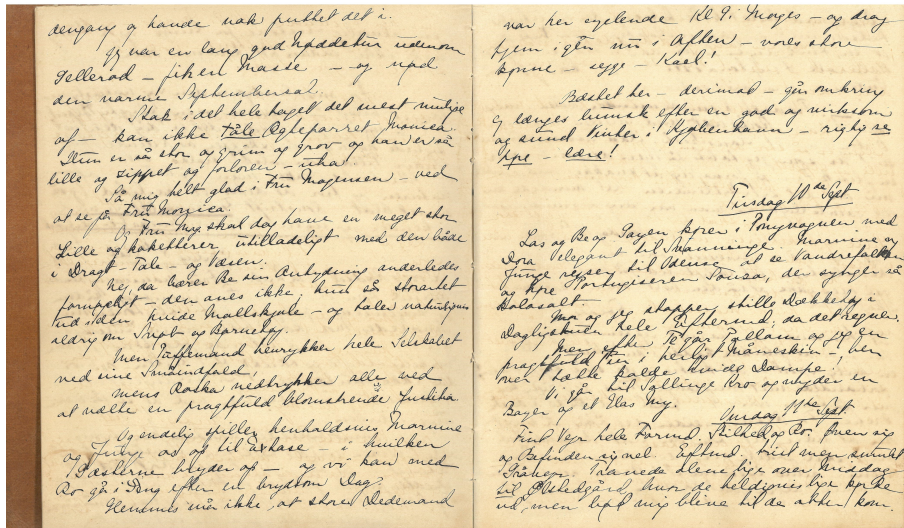 dengang og havde nok puttet det i.
Vi var en lang god Nøddetur udenom
Gellerød – fik en Masse – og nød
den varme Septembersol
Stak i det hele taget det mest mulige
af – kan ikke tåle Ægteparret Monica.
Hun er så stor og grim og grov og han er så
lille og sippet og forloren – uha.
Så mig helt glad i Fru Mogensen – ved
at se på Fru Monica.
Og Fru Mog. skal dog have en meget stor
Lille og koketterer utilladeligt med den både
i Dragt – Tale – og Væsen.
Nej, da bærer Be sin Antydning anderledes
fornøjeligt – den anes ikke, hun så storartet
ud i den hvide Mollskjole – og taler naturligvis
aldrig om Snot og Barnetøj.
Men Jaffemand henrykker hele Selskabet
ved sine Småindfald,
mens Raska nedtrykker alle ved
at vælte en pragtfuld blomstrende Fuchsia.
Og endelig spiller henholdsvis Marmine
og Junge os op til Extase – i hvilken
Gæsterne bryder op – og vi kan med
Ro gå i Seng efter en brydsom Dag.
Glemmes må ikke, at store Dedemand
var her cyclende Kl 9 i Morges – og drog
hjem igen nu i Aften – vores store
kønne – sygge – Kael!
Bæstet her – derimod – går omkring
og længes lumsk efter en god og virksom
og sund Vinter i Kjøbenhavn – rigtig se
hpe – lære!
Tirsdag 10de Sept
Las og Be og Saxen kører i Ponyvognen med
Dora elegant til Svanninge. Marmine og
Junge rejser til Odense at se Vandrefalken
og høre Portugiseren Souza, der synger så
Mor og jeg stopper stille Dækketøj i
Dagligstuen hele Efterm, da det regner.
Men efter Te går Tallam og jeg en
pragtfuld Tur i herligt Måneskin – hen
over tætte kolde hvide Dampe!
Vi går til Sollinge Kro og nyder en
Bayer og et Glas My.
Onsdag 11te Sept.
Fint Vejr hele Formd. Stilhed og Ro. Øven sig
og Befinden sig vel. Eftmd. trist mer
Gråvejr. Tranede alene lige over Middag
til Ølstedgård, hvor de heldigvis lige kørte
ud, men bød mig blive til de atter kom.